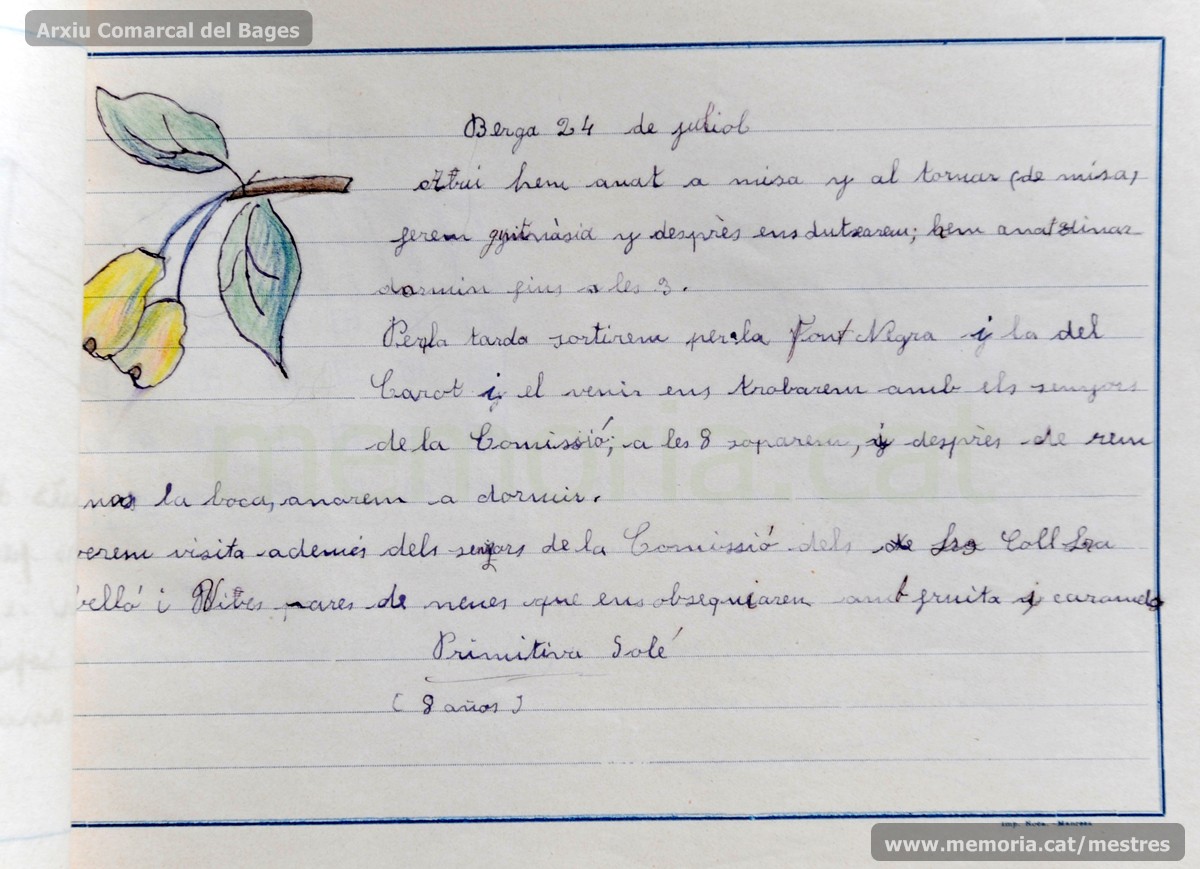 Arxiu Comarcal del Bages
Berga 24 de juliol
Atui hem anat a misa y al tornar (de misa)
ferem gyitnàsia y desprès ens dutxarem; hem anat dinar
dormin fins a les 3.
Per la tarda sortirem per la Font Negra i la del
Carot i el venir ens trobarem amb els senyors
de la Comissió; a les 8 soparem, i desprès de rem
nos la boca, anarem a dormir.
verem visita ademés dels senyors de la Comissió dels Coll
velló i Vives pares de nenes que ens obsequiaren amb fruita i caramels
Primitiva Solé
(8 años)
Manresa
memoria.cat
www.memoria.cat/mestres